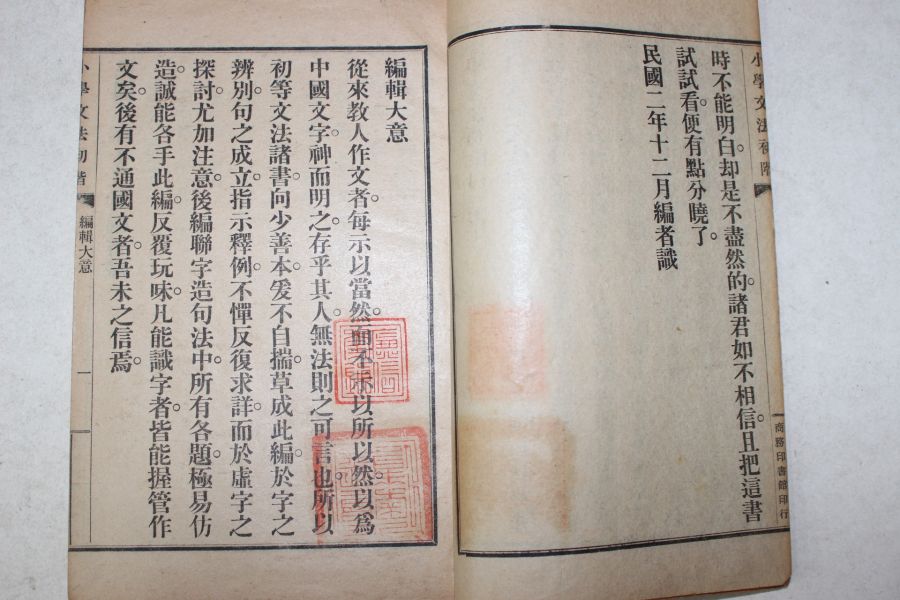 時不能明白。却是不盡然的。諸君如不相信。且把這書
試試看。便有點分曉了。
民國二年十二月編者識
小學文法初階
商務印書館印行
編輯大意
從來教人作文者。每示以當然。而不示以所以然。以爲
中國文字。神而明之。存乎其人。無法則之可言也。所以
初等文法諸書。向少善本。爰不自揣。草成此編。於字之
辨別。句之成立。指示釋例。不憚反復求詳。而於虛字之
探討。尤加注意。後編聯字造句法中。所有各題。極易仿
造。誠能各手此編。反覆玩味。凡能識字者。皆能握管作
文矣。後有不通國文者。吾未之信焉。
小學文法初階
編輯大意
一